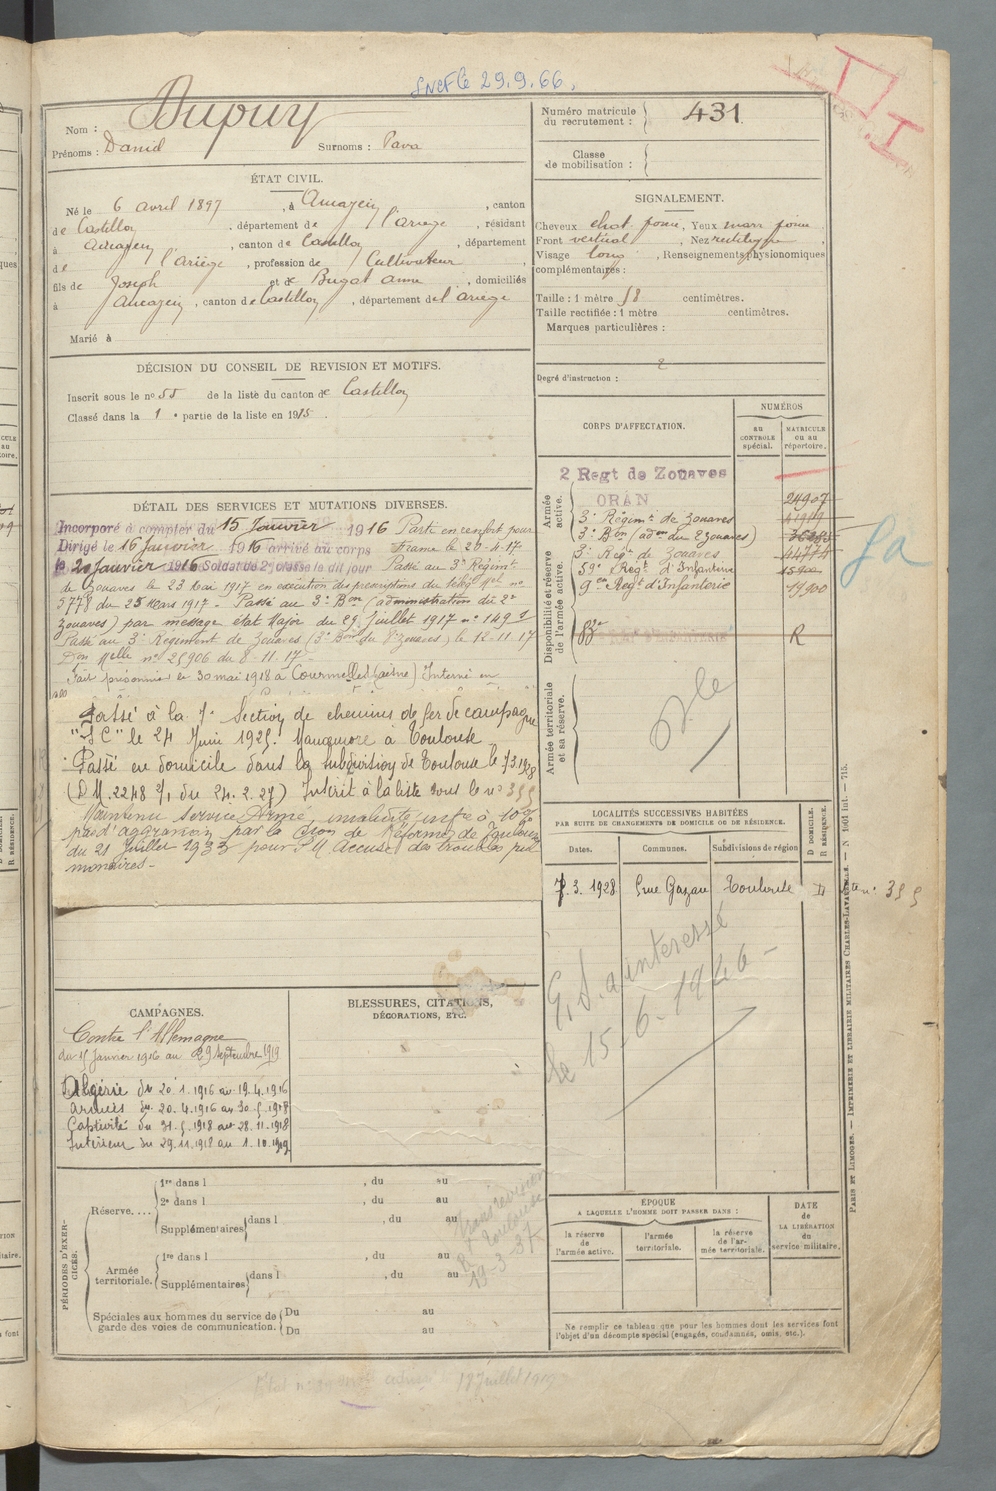 SNCF le 29.9.66.
Nom : Dupuy
Prénoms : Daniel Surnoms : Pava
Numéro matricule du recrutement : 431
Classe de mobilisation :
ÉTAT CIVIL.
Né le 6 avril 1897, à Aucazein, canton
de Castillon, département de l'ariège, résidant
à Aucazein, canton de Castillon, département
de l'ariège, profession de Cultivateur,
fils de Joseph et de Bugat anne, domiciliés
à Aucazein, canton de Castillon, département de l'ariège
Marié à
SIGNALEMENT.
Cheveux chat. foncé, Yeux marr foncé
Front vertical, Nez rectiligne,
Visage long, Renseignements physionomiques
complémentaires :
Taille : 1 mètre 58 centimètres.
Taille rectifiée : 1 mètre centimètres.
Marques particulières :
Degré d'instruction : 2
DÉCISION DU CONSEIL DE REVISION ET MOTIFS.
Inscrit sous le no 55 de la liste du canton de Castillon
Classé dans la 1e partie de la liste en 1915.
DÉTAIL DES SERVICES ET MUTATIONS DIVERSES.
Incorporé à compter du 15 Janvier 1916 Parti en renfort pour
Dirigé le 16 Janvier 1916 arrivé au corps France le 20-4-17
le 20 Janvier 1916 Soldat de 2e classe le dit jour Passé au 3e Régiment
de Zouaves le 23 Mai 1917 en exécution des prescriptions du télég. Mel no
5778 du 25 Mars 1917 - Passé au 3e Bon (administration du 2e
Zouaves) par message état Major du 29 Juillet 1917 no 1491
Passé au 3e Régiment de Zouaves (3e Bon du 8e Zouaves) le 12-11-17
Don Melle no 25906 du 8-11-17 -
Fait prisonnier le 30 mai 1918 à Courmelles (aisne) Interné en
Passé à la 7e Section de chemins de fer de campagne
"SC" le 24 Juin 1925. Manoeuvre à Toulouse
Passé en domicile dans la subdivision de Toulouse le 7.3.1928
(DM.2248 2/1 du 24.2.27) Inscrit à la liste sous le no 355
Maintenu service Armé, invalidité infre à 10%
pas d'aggravation par la Cion de Réforme de Toulouse
du 21 Juillet 1933 pour : "Accuse des troubles pul
monaires -
CORPS D'AFFECTATION.
NUMÉROS
au contrôle spécial.
matricule ou au répertoire.
Armée active.
2 Regt de Zouaves
ORAN 24907
3e Régimt de Zouaves 41919
3e Bon (adon du 2 Zouaves)
3e Régt de Zouaves
Disponibilité et réserve de l'armée active.
59e Régt d'Infanterie 15900
9e Regt d'Infanterie 19900
R
Armée territoriale et sa réserve.
LOCALITÉS SUCCESSIVES HABITÉES
PAR SUITE DE CHANGEMENTS DE DOMICILE OU DE RÉSIDENCE.
Dates. Communes. Subdivisions de région D DOMICILE. R RÉSIDENCE.
7.3.1928 Toulouse D 355
G.S. a interessé
le 15-6-1946 -
CAMPAGNES.
Contre l'Allemagne
du 15 Janvier 1916 au 29 Septembre 1919
Algérie du 20.1.1916 au 19.4.1916
Armées du 20.4.1916 au 30.5.1918
Captivité du 31.5.1918 au 28.11.1918
Intérieur du 29.11.1918 au 1.10.1919
BLESSURES, CITATIONS,
DÉCORATIONS, ETC.
PÉRIODES D'EXERCICES.
Réserve....
1re dans l , du au
2e dans l , du au
Supplémentaires dans l , du au
Armée territoriale.
1re dans l , du au
Supplémentaires dans l , du au
Spéciales aux hommes du service de garde des voies de communication.
Du au
Du au
Toulouse
19-3-37
ÉPOQUE
A LAQUELLE L'HOMME DOIT PASSER DANS :
la réserve de l'armée active.
l'armée territoriale.
la réserve de l'armée territoriale.
DATE de LA LIBÉRATION du service militaire.
Ne remplir ce tableau que pour les hommes dont les services font
l'objet d'un décompte spécial (engagés, condamnés, omis, etc.).
PARIS ET LIMOGES. — IMPRIMERIE ET LIBRAIRIE MILITAIRES CHARLES-LAVAUZELLE. — N 1031 Int. — 715.